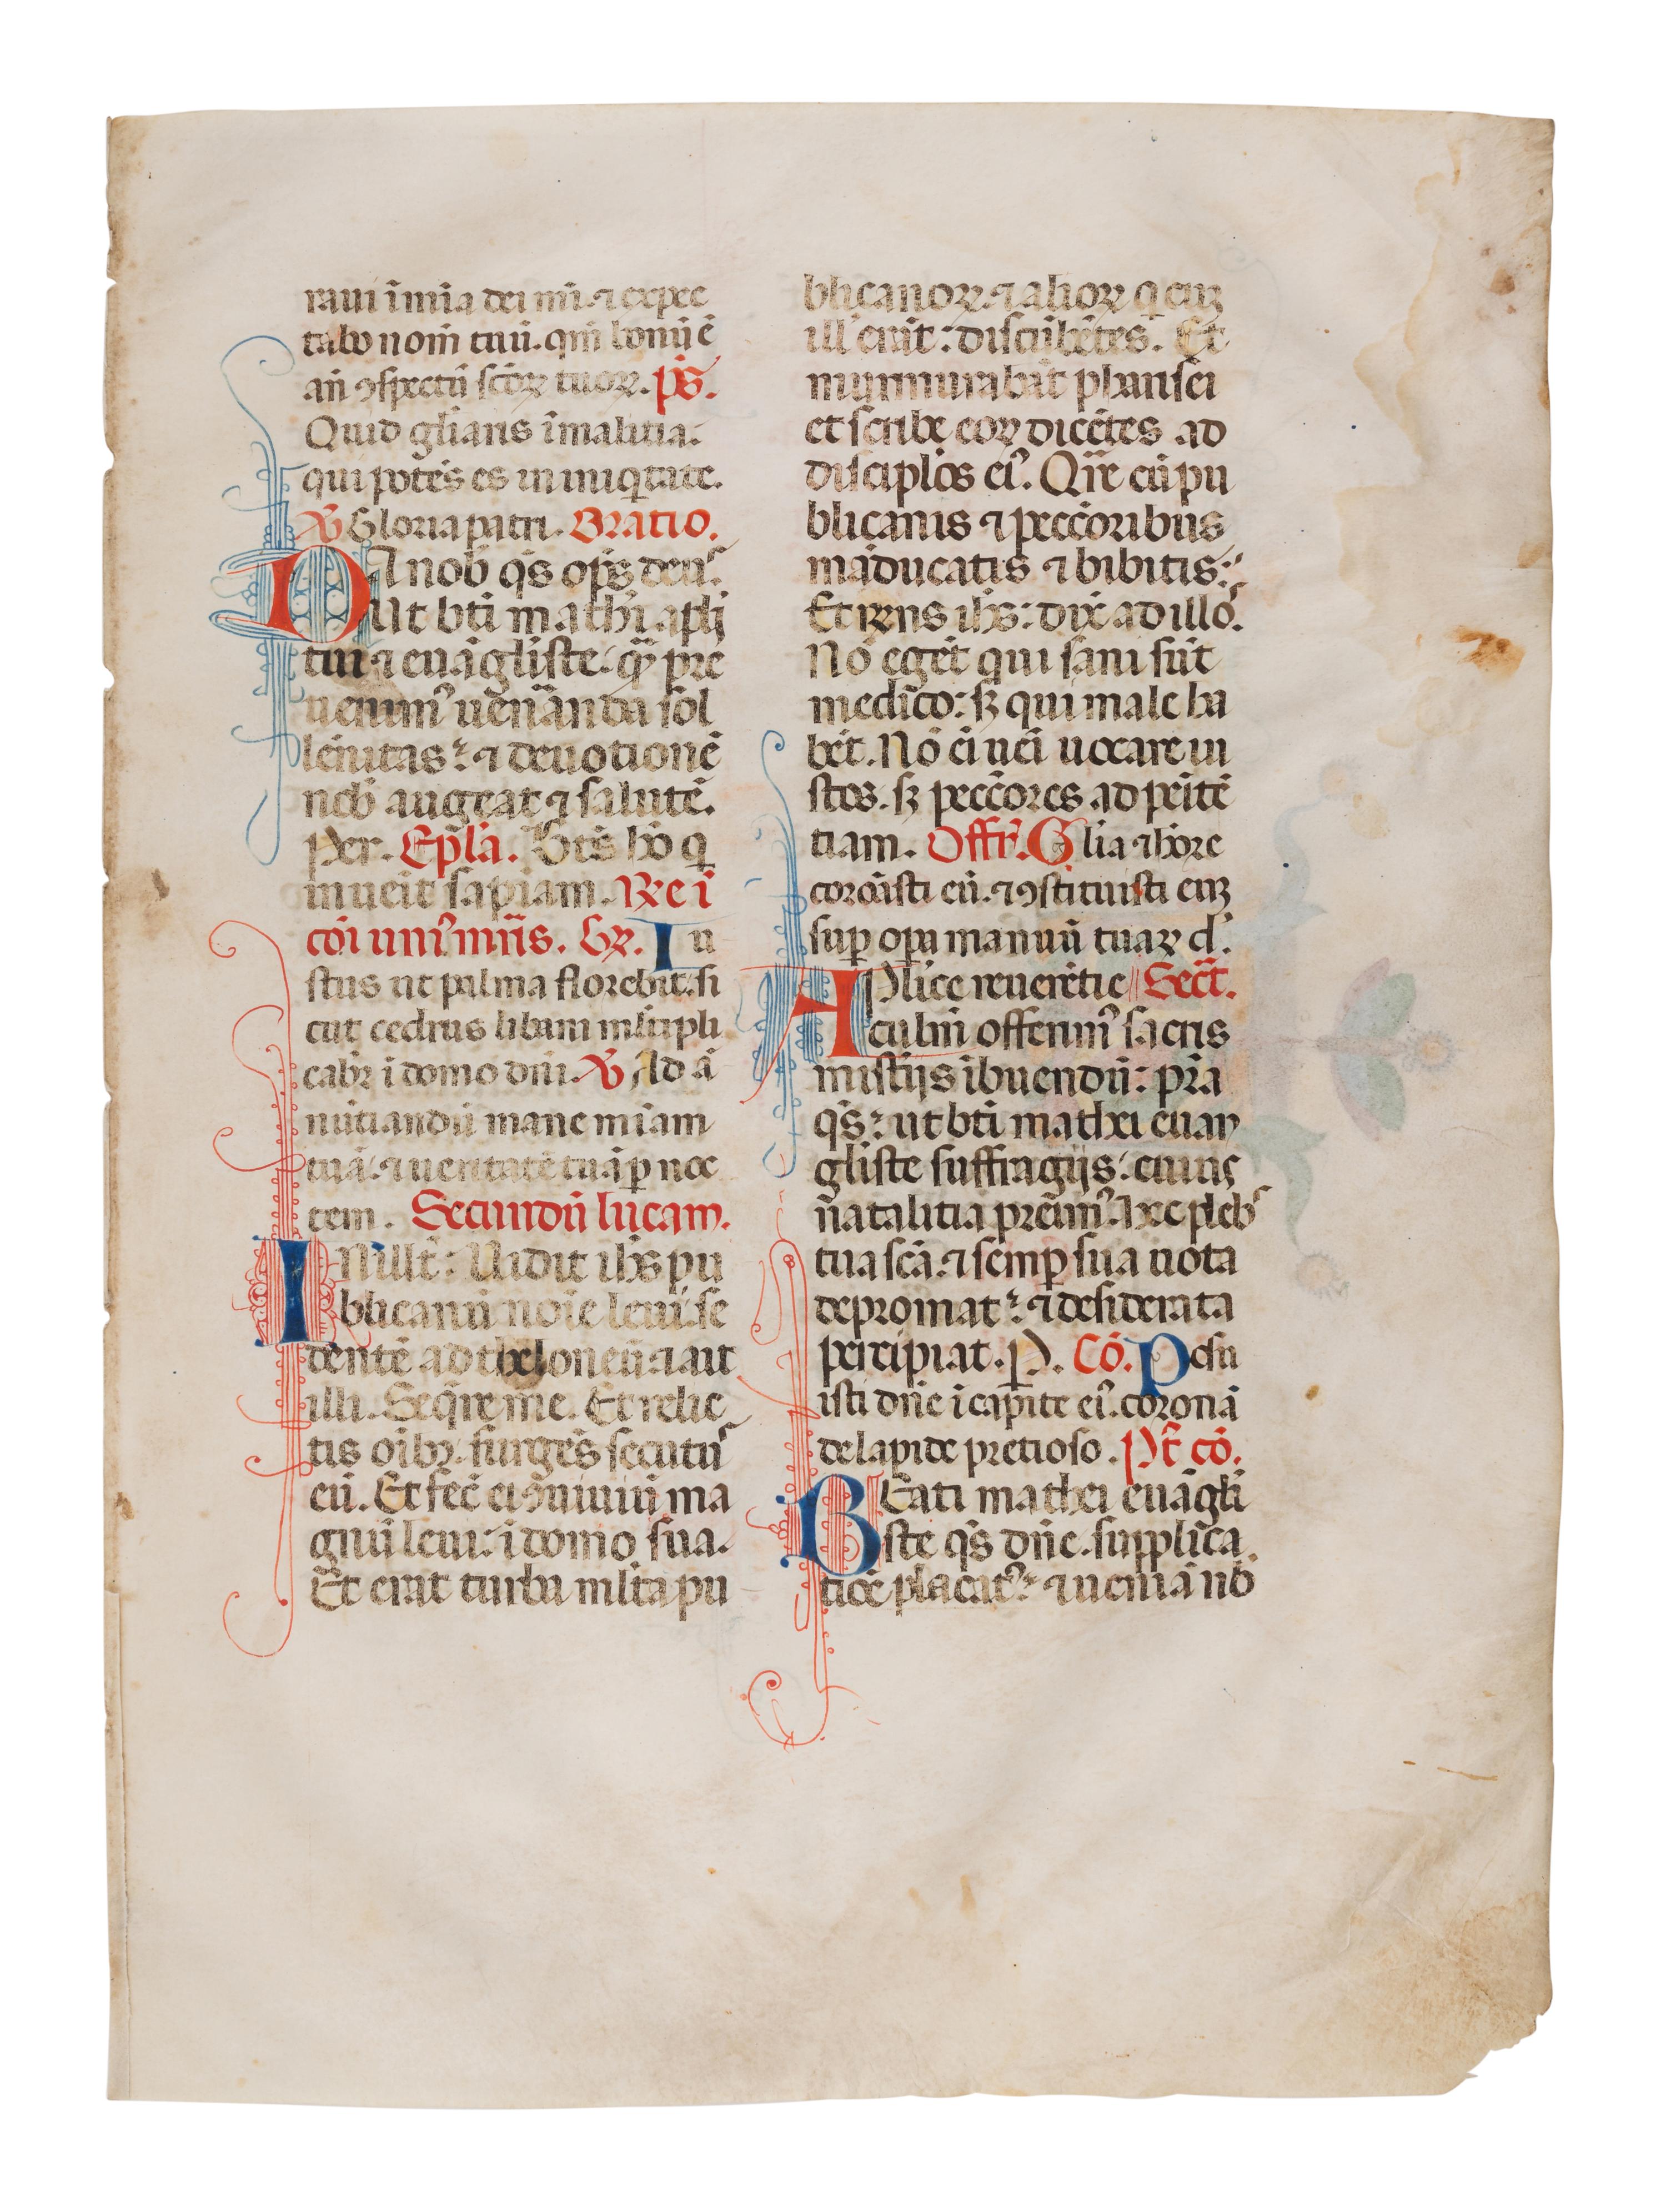 raui ĩ mĩa dei mī. ⁊ expec
tabo nom̄ tuū. qm̄ bonū ē
añ ꝯspectū scōꝝ tuoꝝ. p̄s.
Quid gl̄iaris ĩ malitia:
qui potēs es in iniq̄tate.
℣ Gloria patri. Oratio.
DA nob̄ q̄s op̄s deuˢ.
Ut bt̄i mathĩ apl̄i
tui ⁊ euāgliste: qᷓ pre
uenimꝰ uen̄anda sol
lēnitas: ⁊ deuotionē
nob̄ augeat ⁊ salutē.
Per. Ep̄la. Bt̄s hō q̄
inueit sapiam. Re ĩ
cōi unĩꝰ mr̄is. Gꝝ. Iu
stus ut palma florebit. si
cut cedrus libani ml̄tipli
cabꝝ i domo dn̄i. ℣ Ad ā
nūtiandū mane mĩam
tuā. ⁊ ueritatē tuā ꝑ noc
tem. Secundū lucam.
IN ill̄ t̄: Uidit ih̄s pu
blicanū noīe leui. se
dentē ad theloneū. ⁊ ait
illi. Seq̄re me. Et relic
tis oĩbꝝ. surgēs secutuˢ
eū. Et fec̄ ei ꝯuiuiū ma
gnū leui: i domo sua.
Et erat turba ml̄ta pu
blicanoꝝ. ⁊ alioꝝ q̄ cuꝫ
ill̄ erāt: discūbētes. Et
murmurabāt pharisei
et scribe eoꝝ dicētes ad
disciplōs eiꝰ. Qr̄e cū pu
blicanis ⁊ pecc̄oribus
māducatis ⁊ bibitis:
Et rn̄s ih̄s: dix̄ ad illoˢ.
Nō egēt qui sani sūt
medico: sꝫ qui male ha
bēt. Nō ei uei uocare iu
stos. sꝫ pecc̄ores ad penitē
tiam. Offr̄. Gl̄ia ⁊ hōre
coroāsti eū. ⁊ ꝯstituisti euꝫ
suꝑ oꝑa manuū tuaꝝ dˢ.
APlice reuerētie Sec̄t.
cuhn̄ offerimꝰ sacris
mistĳs ĩbuendū: p̄ra
q̄s: ut bt̄i mathei euan
gliste suffragĳs: cuiuꝰ
n̄atalitia preimꝰ. hec plebˢ
tua scā. ⁊ semꝑ sua uota
depromat: ⁊ desiderata
percipiat. P. Cō. Posu
isti dn̄e i capite eiꝰ. coronā
de lapide pretioso. Pt̄ cō.
BEati mathei euāgli
ste q̄s dn̄e. supplica
tiōe placatꝰ: ⁊ ueniā nob̄